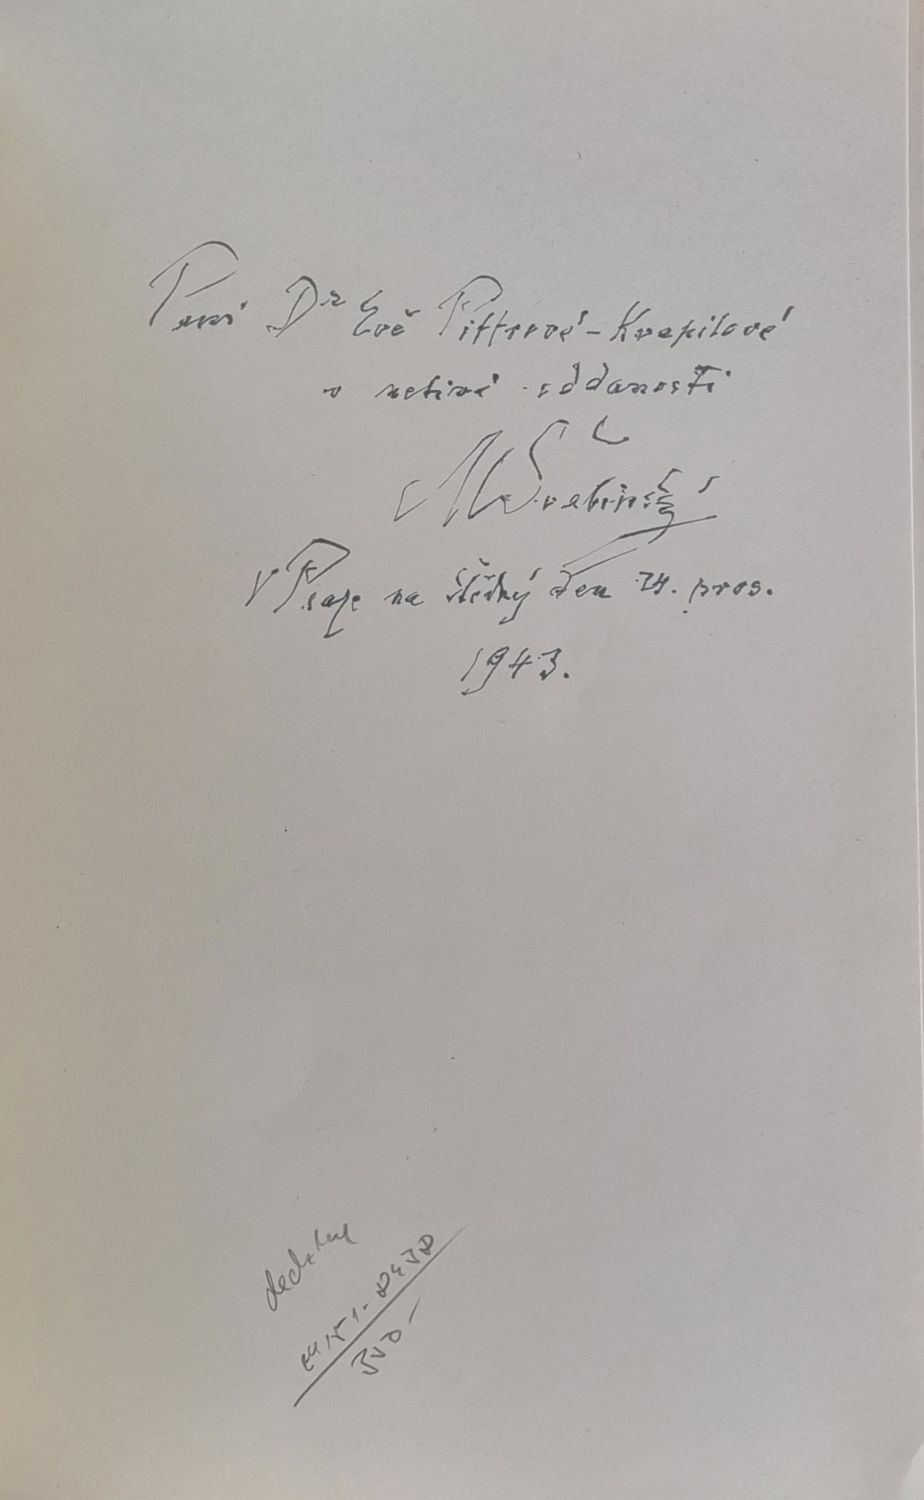 Paní Dr Evě Pitterové-Kvapilové
v uctivé oddanosti
MŠvabinský
V Praze na štědrý den 24. pros.
1943.